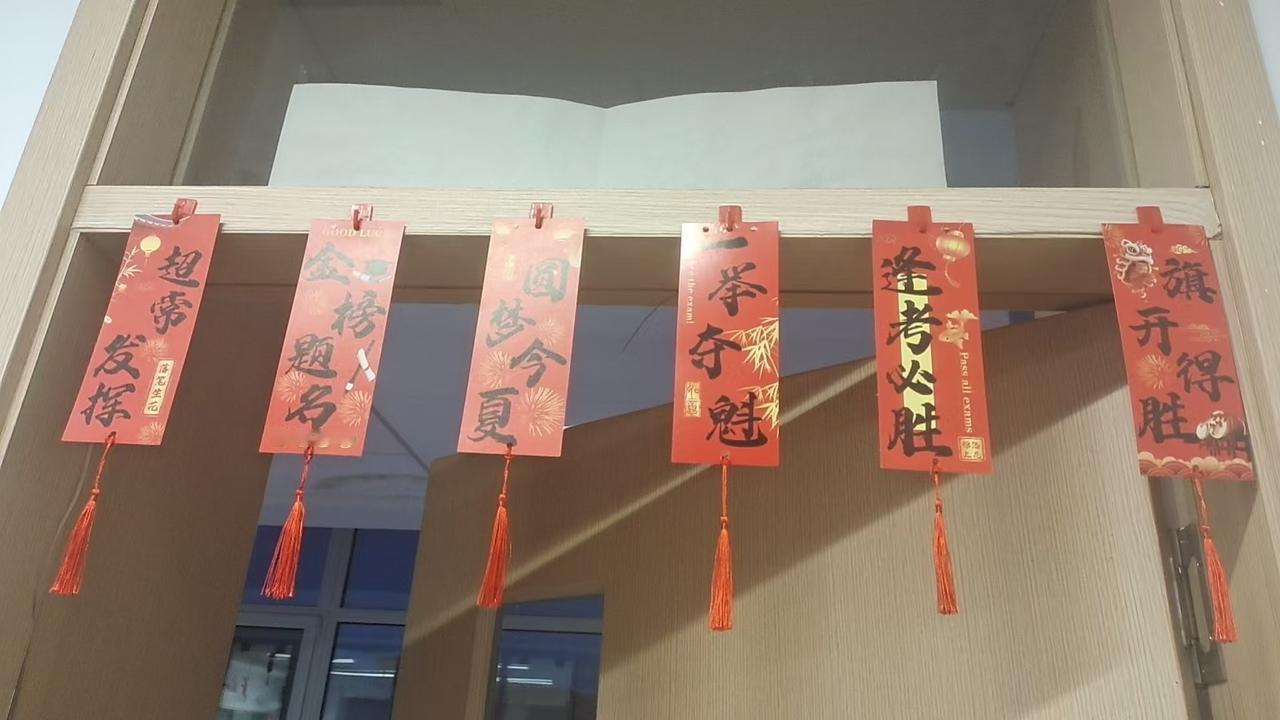 超常发挥
落笔生花
GOOD LUC
金榜题名
圆梦今夏
一举夺魁
the exam!
逢考必胜
Pass all exams
旗开得胜